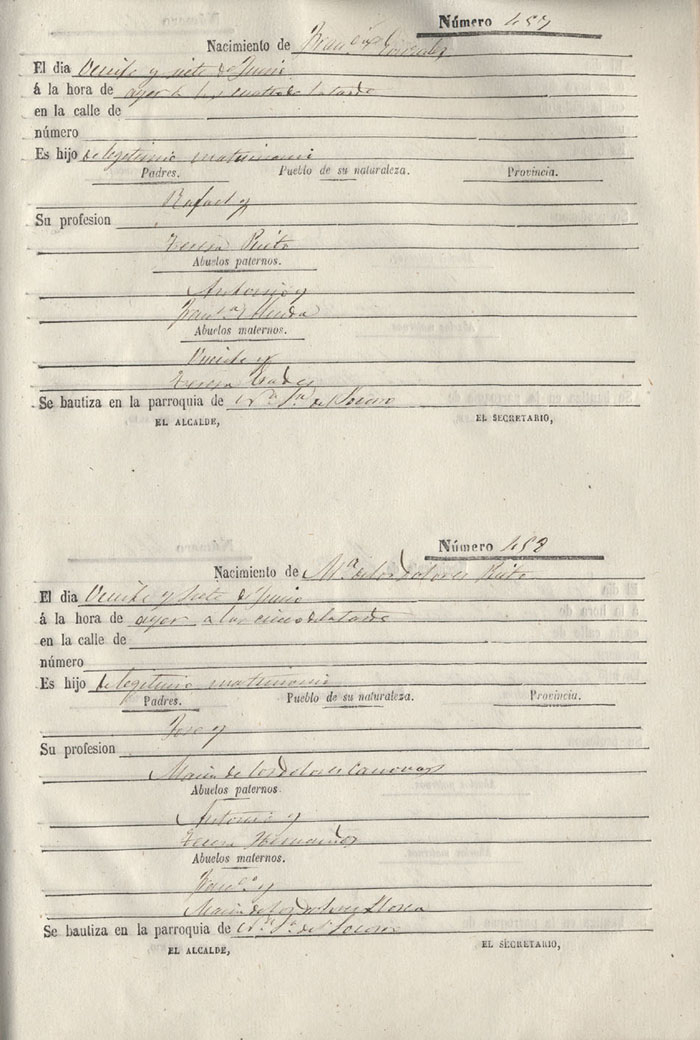 Número 457
Nacimiento de Franco. Gonzalez
El dia Veinte y siete de Junio
á la hora de ayer a las cuatro de la tarde
en la calle de
número
Es hijo de legitimo matrimonio
Padres. Pueblo de su naturaleza. Provincia.
Rafael y
Su profesion
Teresa Prieto
Abuelos paternos.
Antonio y
Abuelos maternos.
Vicente y
Teresa
Se bautiza en la parroquia de Nª Sª del Socorro
EL ALCALDE, EL SECRETARIO,
Número 458
Nacimiento de Mª de los Dolores
El dia Veinte y siete de Junio
á la hora de ayer a las cinco de la tarde
en la calle de
número
Es hijo de legitimo matrimonio
Padres. Pueblo de su naturaleza. Provincia.
Jose y
Su profesion
Maria de los Dolores Canovas
Abuelos paternos.
Antonio y
Teresa Hernandez
Abuelos maternos.
Franco. y
Maria de los Dolores Llorca
Se bautiza en la parroquia de Nª Sª del Socorro
EL ALCALDE, EL SECRETARIO,